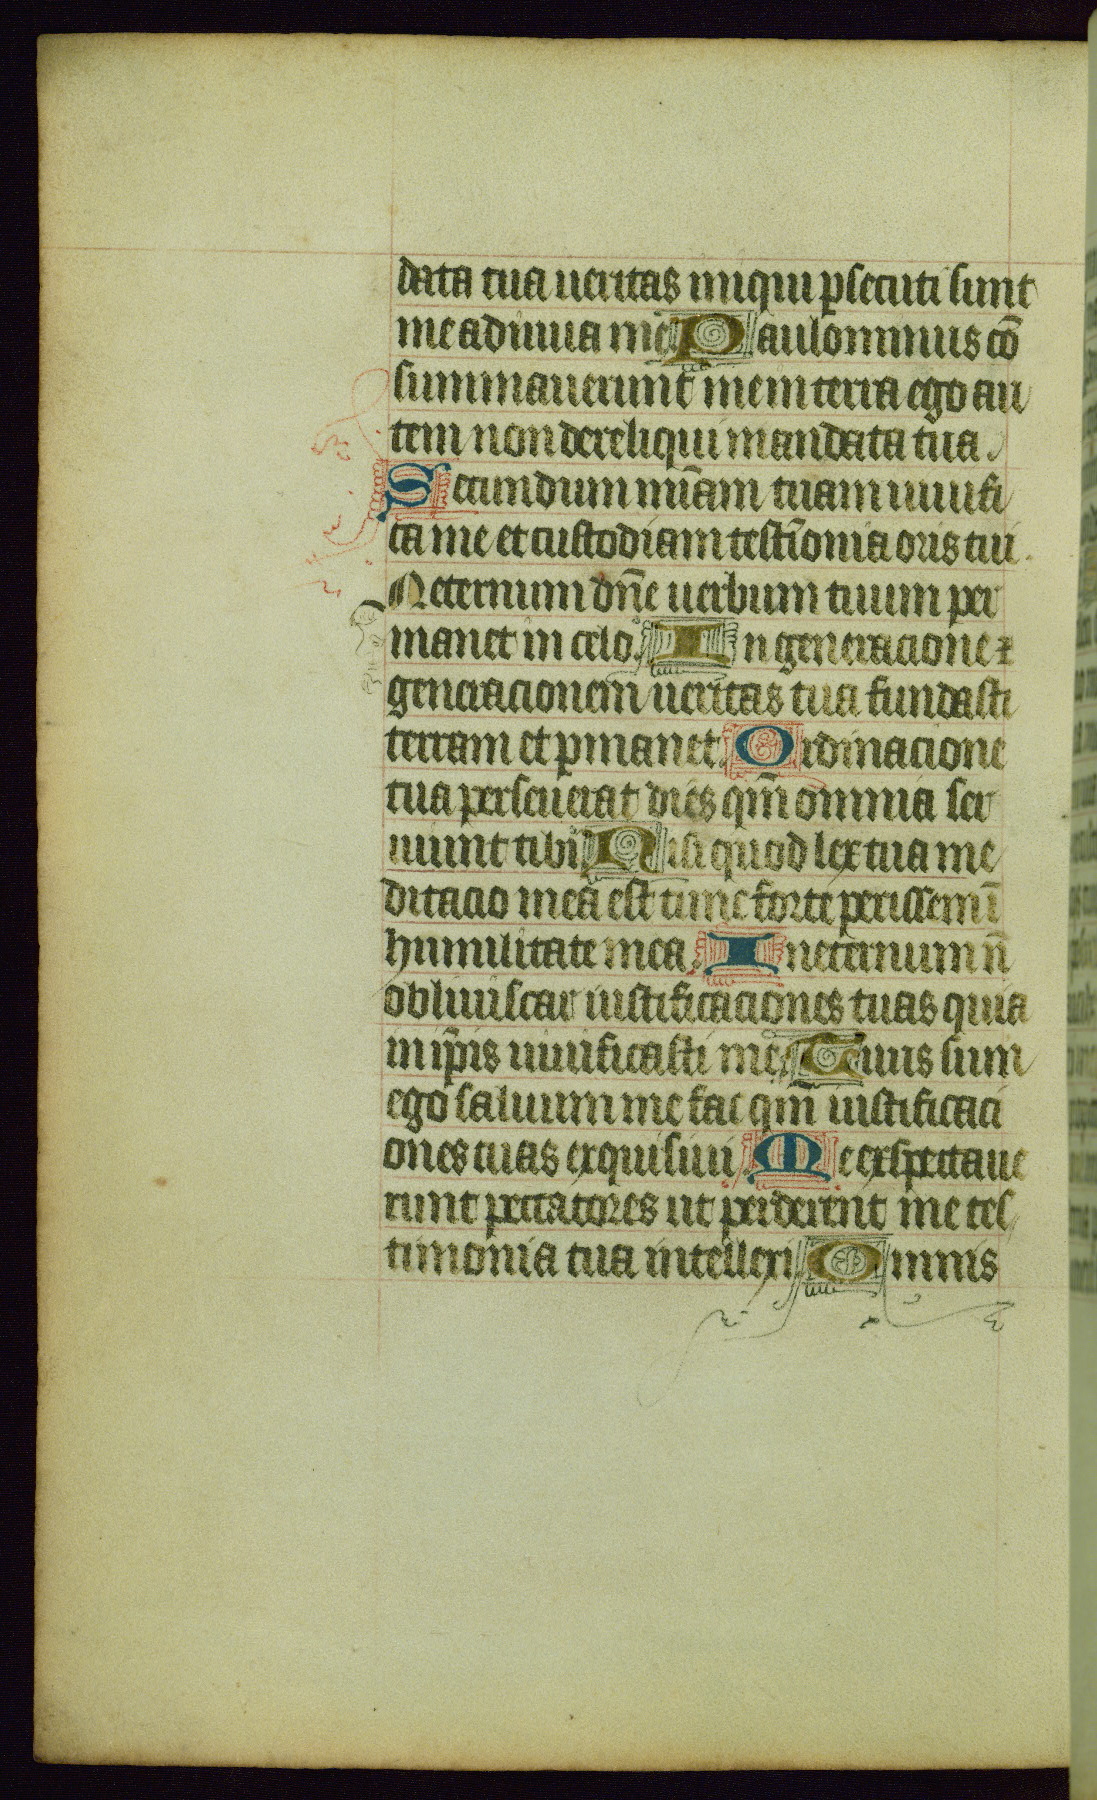 data tua ueritas iniqui psecuti sunt
me adiuua me Paulominus cō
summauerunt me in terra ego au
tem non dereliqui mandata tua.
Secundum miāam tuam uiuifi
ca me et custodiam testīonia oris tui.
In eternum dn̄e uerbum tuum per
manet in celo. In generacione ⁊
generacionem ueritas tua fundasti
terram et pmanet. Ordinacione
tua perseuerat dies qm̄ omnia ser
uiunt tibi Nisi quod lex tua me
ditacio mea est tunc forte perissem ī
humilitate mea. In eternum n̄
obliuiscar iustificaciones tuas quia
in ip̄is uiuificasti me. Tuus sum
ego saluum me fac qm̄ iustificaci
ones tuas exquisiui. Me exspectaue
runt peccatores ut perderent me tes
timonia tua intellexi. Omnis